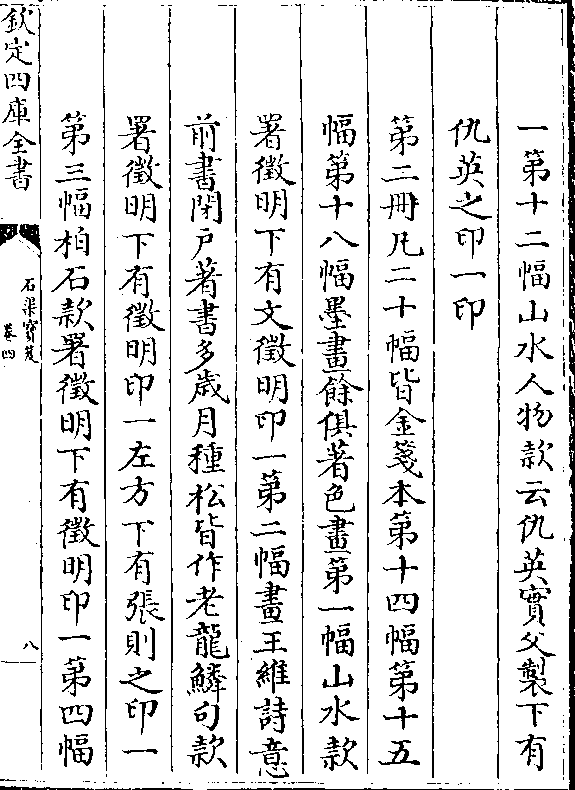 一第十二幅山水人物款云仇英實父製下有
仇英之印一印
第二冊凡二十幅皆金箋本第十四幅第十五
幅第十八幅墨畫餘俱著色畫第一幅山水款
署徵明下有文徵明印一第二幅畫王維詩意
前書閉户著書多歳月種松皆作老龍鱗句款
署徵明下有徵明印一左方下有張則之印一
第三幅柏石款署徵明下有徵明印一第四幅
欽定四庫全書
石渠寶笈
卷四
八